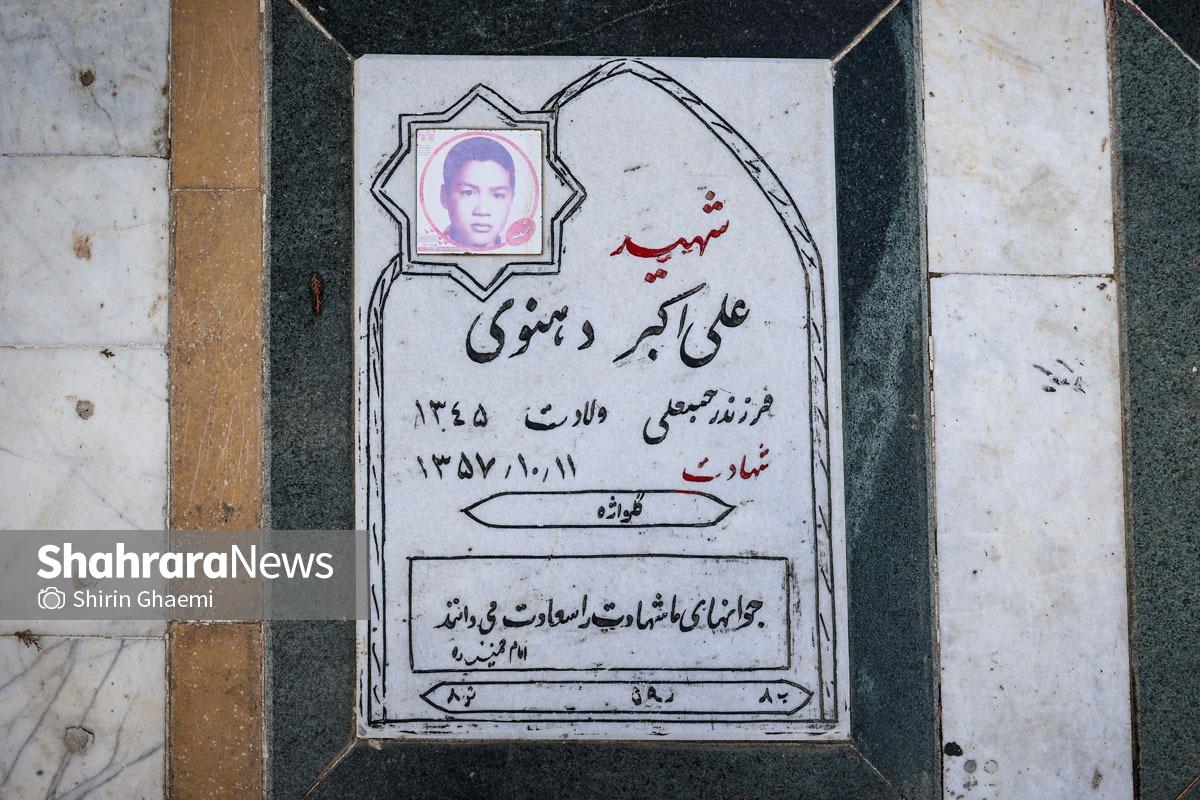 شهید
علی اکبر دهنوی
فرزند رحمبعلی ولادت ۱۳٤۵
شهادت ۱۳۵۷/۱۰/۱۱
گلواژه
جوانهای ما شهادت را سعادت می دانند
امام خمینی ره
ShahraraNews
Shirin Ghaemi